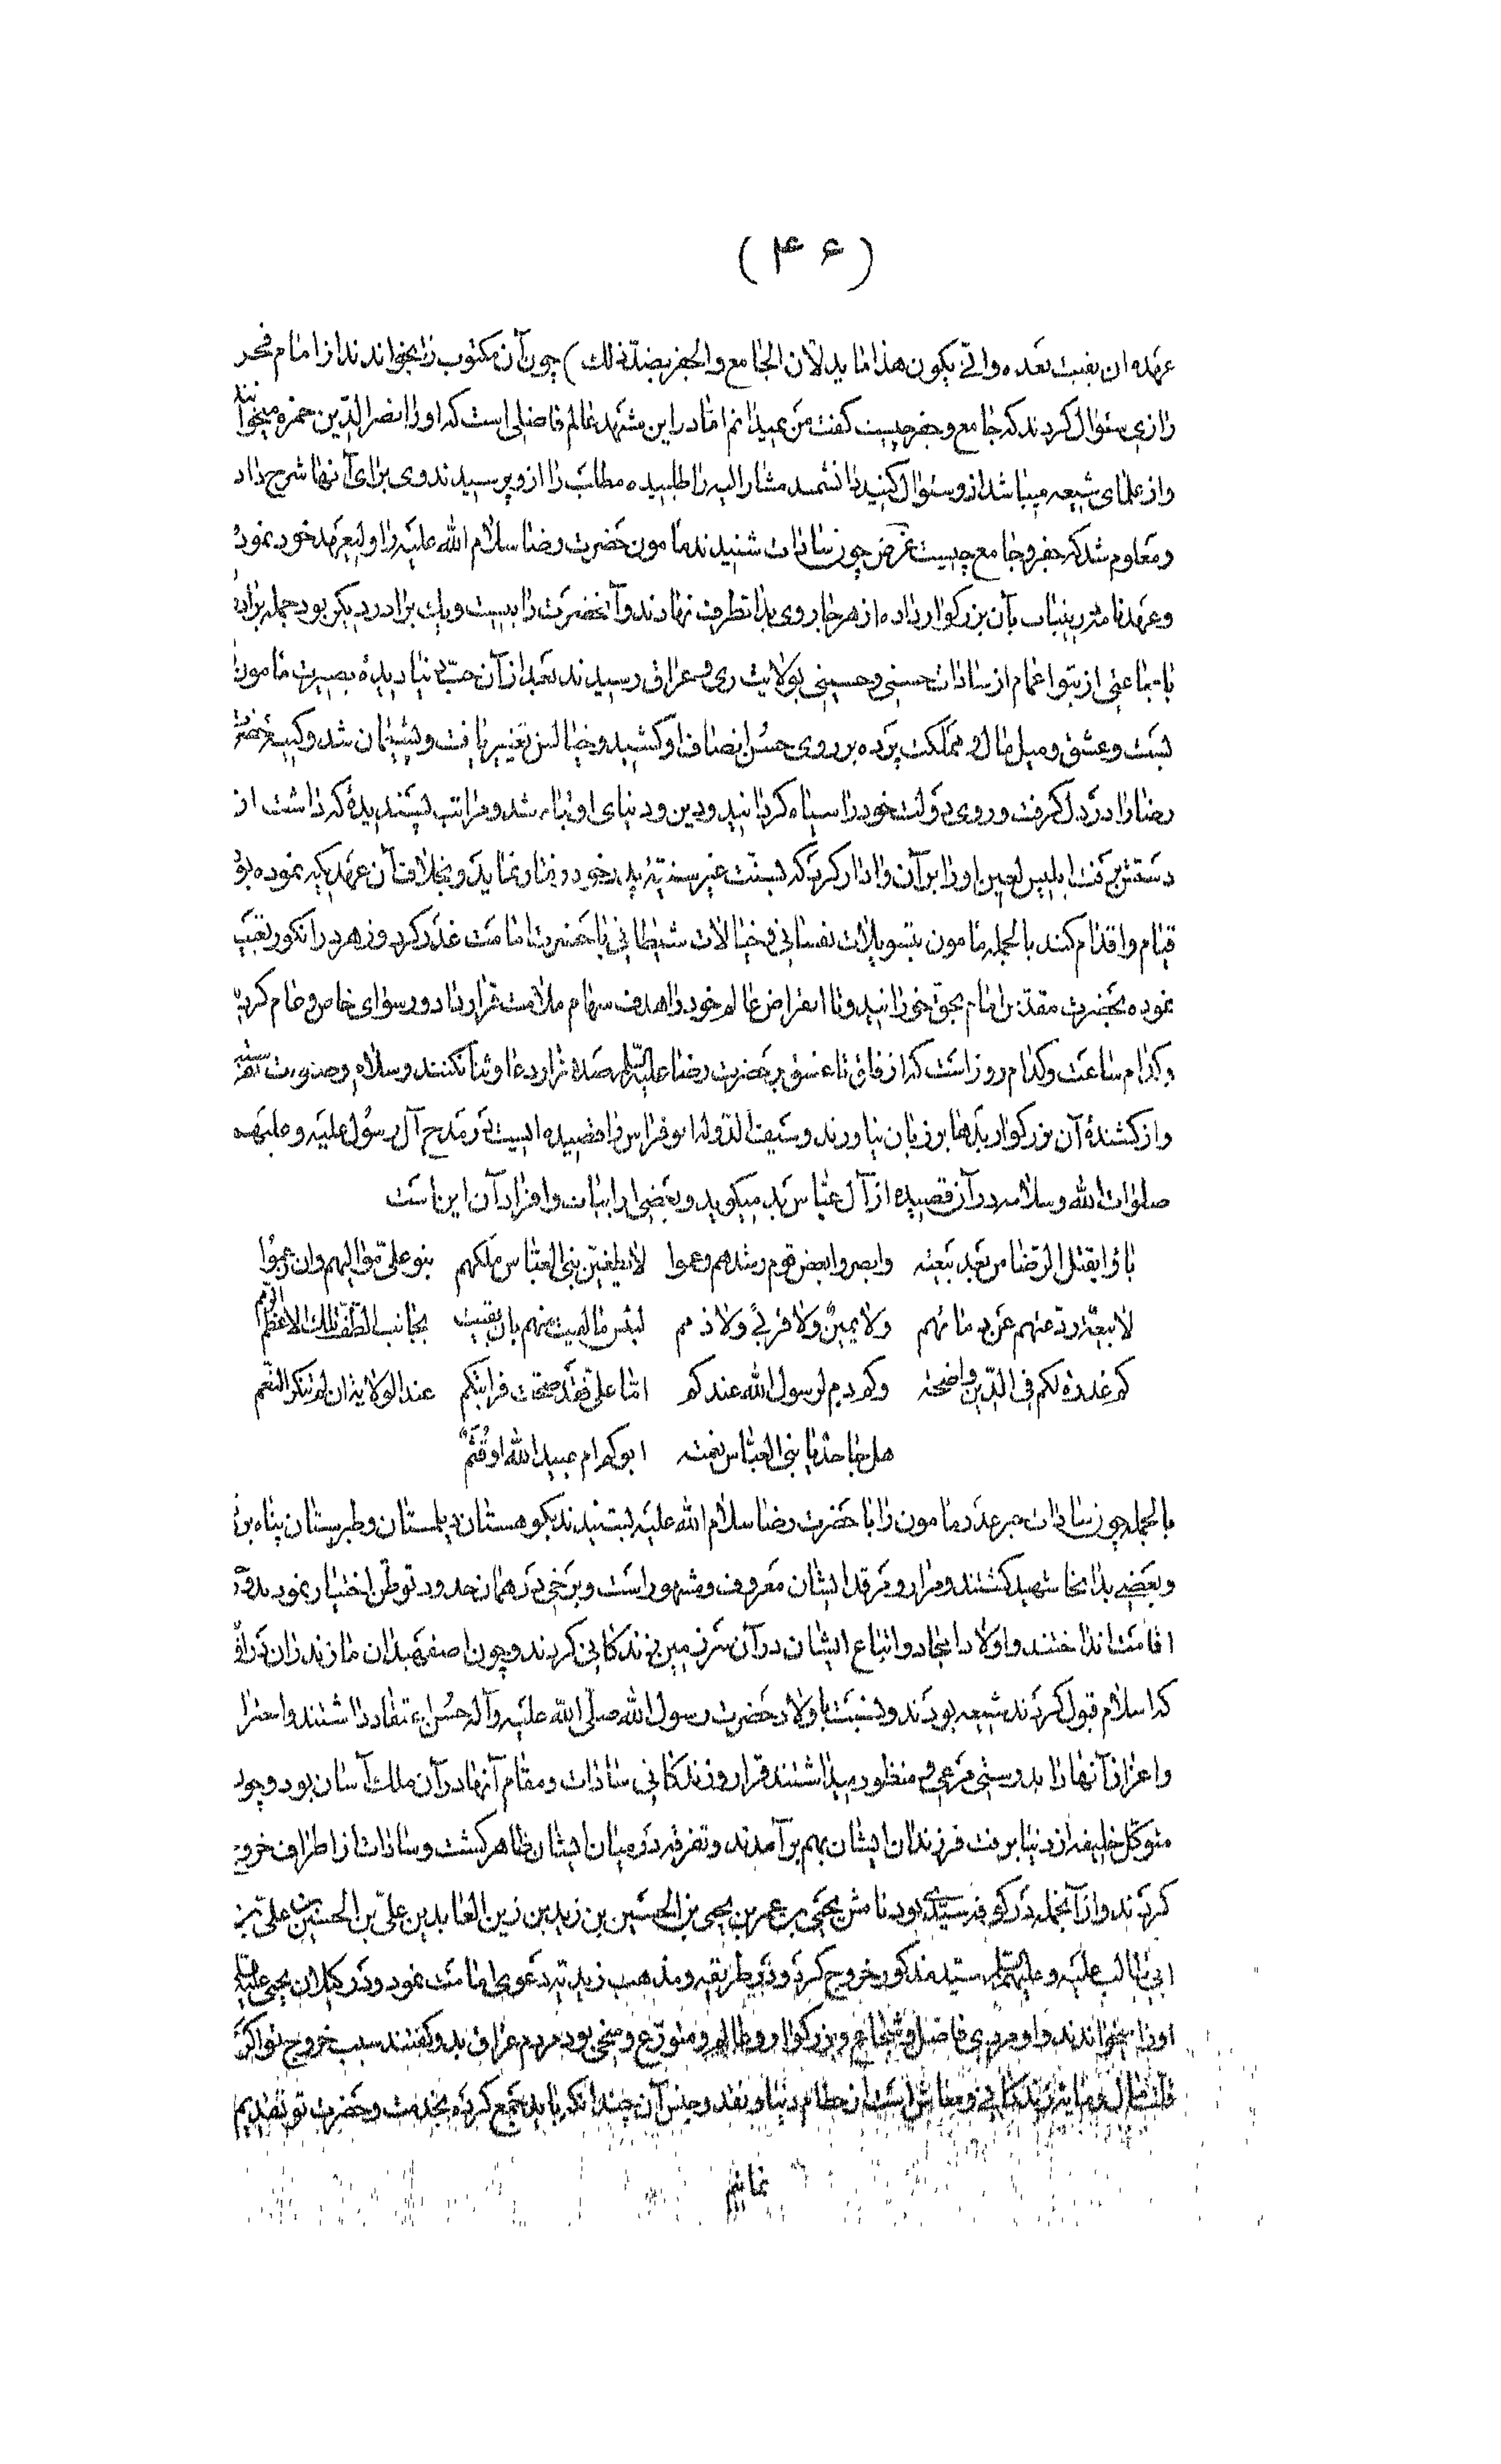 (۴۶)
عهده ان بقیت بعده وانّی یکون هذا ما یدلان الجامع والجفر بضدّ ذلك) چون آن مکتوب را بخواندند از امام فخر
رازی سئوال کردند که جامع و جفر چیست گفت من نمیدانم امّا در این مشهد عالم فاضلی است که او را نصر الدّین حمزه میخوانند
و از علمای شیعه میباشد از او سئوال کنید دانشمند مشار الیه را طلبیده مطالب را از او پرسیدند وی برای آنها شرح داد
و معلوم شد که جفر و جامع چیست غرض چون سادات شنیدند مأمون حضرت رضا سلام الله علیه را ولیعهد خود نمود
و عهدنامه در اینباب بآن بزرکوار داده از هر جا روی بدانطرف نهادند و آنحضرت را بیست و یك برادر دیکر بود جمله برادران
با جماعتی از بنو اعمام از سادات حسنی و حسینی بولایت ری و عراق رسیدند بعد از آن حبّ دنیا دیدۀ بصیرت مأمون
ببست و عشق و میل مال و مملکت پرده بر روی حسن انصاف او کشید و خیالش تغییر یافت و پشیمان شد و کینۀ حضرت
رضا را در دل کرفت و روی دولت خود را سیاه کردانید و دین و دنیای او تباه شد و مراتب پسندیدۀ که داشت از
دستش برفت ابلیس لعین او را بر آن وادار کرد که بسنّت غیر سنیّۀ پدر خود رفتار نماید و بخلاف آن عهد که نموده بود
قیام و اقدام کند بالجمله مأمون بتسویلات نفسانی و خیالات شیطانی با حضرت امامت غدر کرد و زهر در انکور تعبیه
نموده بحضرت مقدّس امام بحق خورانید و تا انقراض عالم خود را هدف سهام ملامت قرار داد و رسوای خاص و عام کردید
و کدام ساعت و کدام روز است که از فاق تا عشق بر حضرت رضا علیه السّلام صد هزار دعا و ثنا نکنند و سلام و صلوت نفرستند
و از کشندۀ آن بزرکوار بدها بر زبان نیاورند و سیف الدّوله ابو فراس را قصیده ایست در مدح آل رسول علیه و علیهم
صلوات الله و سلامه در آن قصیده از آل عبّاس بد میکوید و بعضی از ابیات و افراد آن این است
باؤا بقتل الرّضا من بعد بیعته وابصروا بعض قوم رشدهم وعموا لا یطغینّ بنی العبّاس ملکهم بنو علیّ موالیهم وان زعموا
لا بیعة ردّعتهم عن دمائهم ولا یمین ولا قربی ولا ذمم لبئس ما لقیت منهم بان بقیت بجانب الطّفّ تلك الاعظم الرّمم
کم غدرة لکم فی الدّین واضحة وکم دم لرسول الله عندکم امّا علیّ فقد صحّت قرابتکم عند الولایة ان لم تنکر النّعم
هل جاحد یا بنی العبّاس نعمته ابوکم ام عبید الله او قثم
بالجمله چون سادات خبر غدر مأمون را با حضرت رضا سلام الله علیه بشنیدند بکوهستان دیلمستان و طبرستان پناه بردند
و بعضی بدانجا شهید کشتند و مزار و مرقد ایشان معروف و مشهور است و برخی در همان حدود توطّن اختیار نموده
اقامت انداختند و اولاد امجاد و اتباع ایشان در آن سرزمین زندکانی کردند و چون اصفهبدان مازندران در اوّل
که اسلام قبول کردند شیعه بودند و بنسبت باولاد حضرت رسول الله صلّی الله علیه وآله حسن اعتقاد داشتند و احترام
و اعزاز آنها را بدرستی مرعی و منظور میداشتند قرار و زندکانی سادات و مقام آنها در آن ملك آسان بود و چون
متوکّل خلیفه از دنیا برفت فرزندان ایشان بهم بر آمدند و تفرقه در میان ایشان ظاهر کشت و سادات از اطراف خروج
کردند و از آنجمله در کوفه سیّدی بود نامش یحیی بن عمر بن یحیی بن الحسین بن زید بن زین العابدین علیّ بن الحسین بن علیّ بن
ابی طالب علیه و علیهم السّلام سیّد مذکور خروج کرد و در طریقه و مذهب زیدیّه دعوی امامت نمود و در کیلان یحیی علیه
او را میخواندند و او مردی فاضل و شجاع و بزرکوار و عالم و متورّع و سخی بود مردم عراق بدو کفتند سبب خروج تو اکر
قلّت مال و مایۀ زندکانی و معاش است از حطام دنیا و نقد و جنس آن چندانکه باید جمع کرده بخدمت و حضرت تو تقدیم
نمائیم